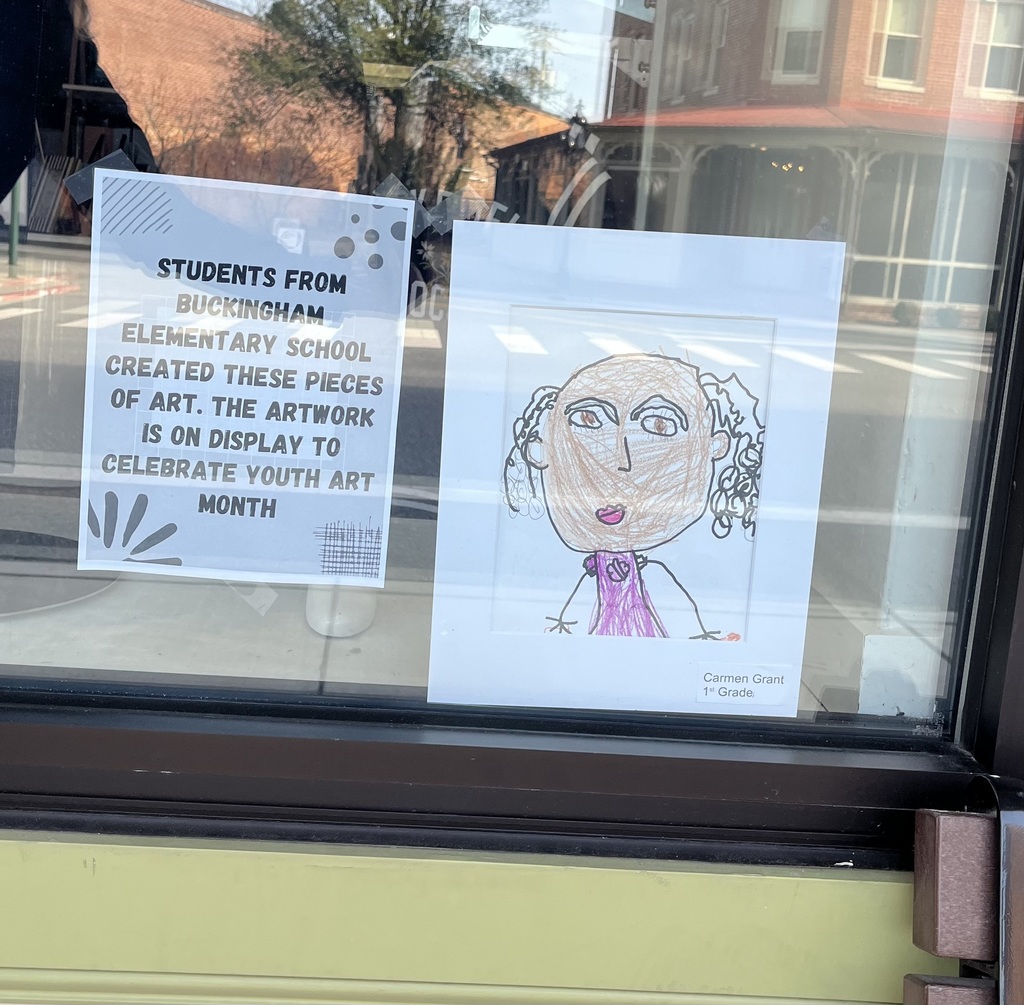 STUDENTS FROM
BUCKINGHAM
ELEMENTARY SCHOOL
CREATED THESE PIECES
OF ART. THE ARTWORK
IS ON DISPLAY TO
CELEBRATE YOUTH ART
MONTH
Carmen Grant
1st Grade